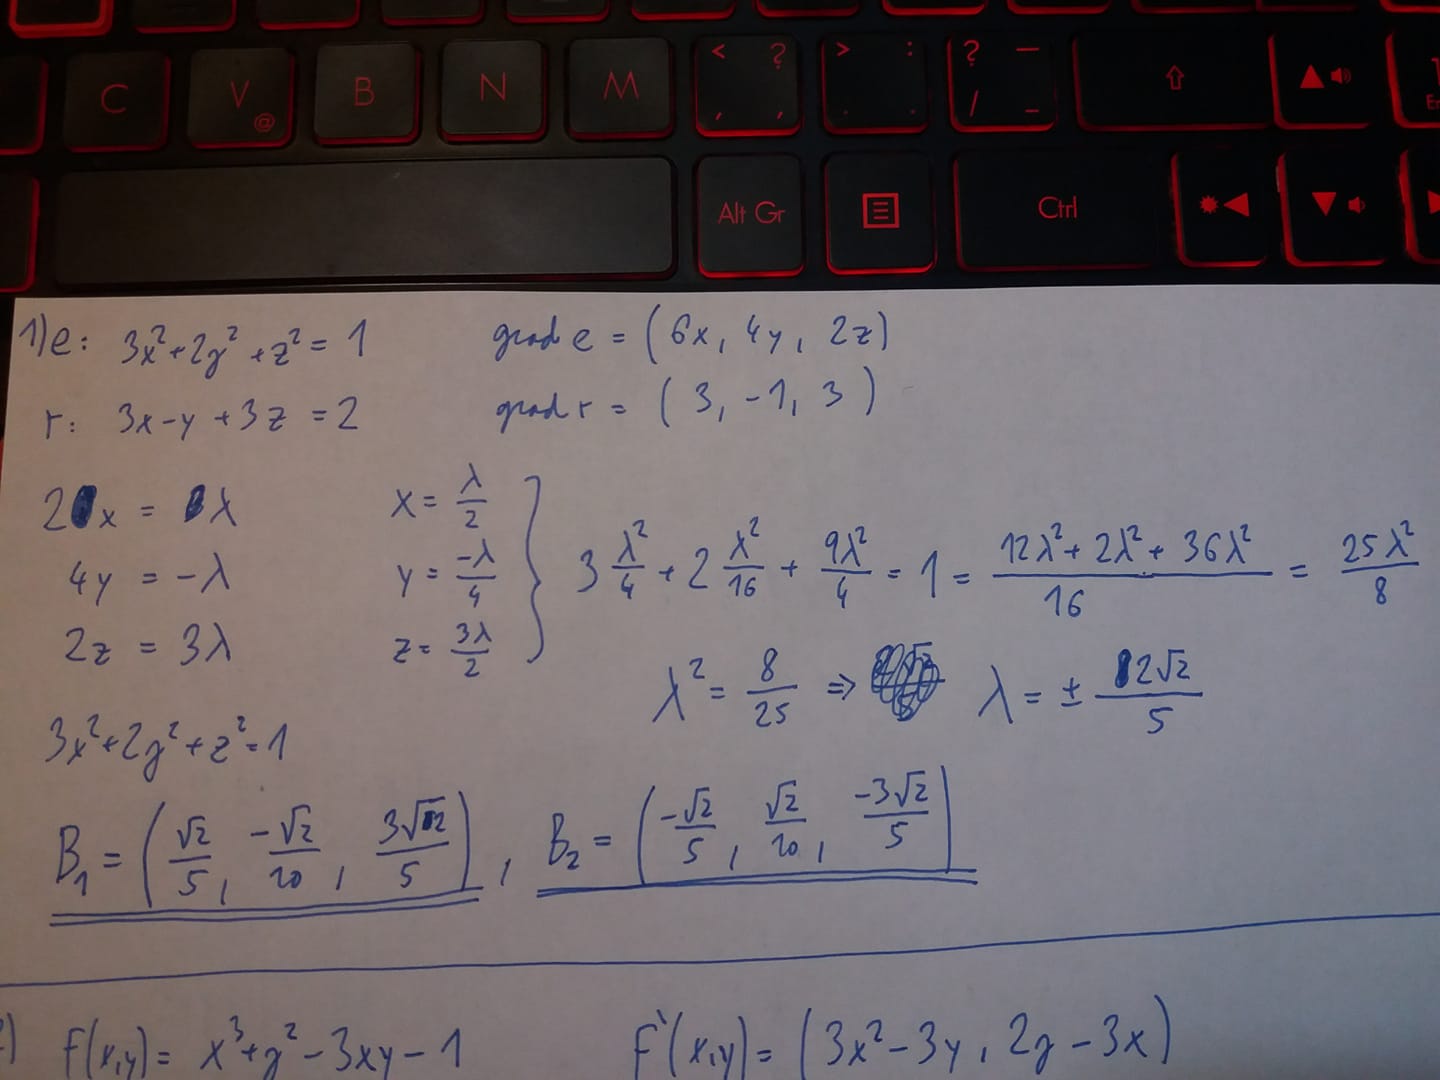 C V @ B N M < ? , , > : . . ? — / _ ⇧ ▲
Alt Gr Ctrl ◀ ▼
1) e: 3x² + 2y² + z² = 1 grad e = (6x, 4y, 2z)
r: 3x - y + 3z = 2 grad r = (3, -1, 3)
2x = λ x = λ/2
4y = -λ y = -λ/4 } 3 λ²/4 + 2 λ²/16 + 9λ²/4 = 1 = (12λ² + 2λ² + 36λ²)/16 = 25λ²/8
2z = 3λ z = 3λ/2
λ² = 8/25 ⇒ λ = ± 2√2/5
3x² + 2y² + z² = 1
B₁ = (√2/5, -√2/10, 3√2/5), B₂ = (-√2/5, √2/10, -3√2/5)
F(x,y) = x³ + y² - 3xy - 1 F'(x,y) = (3x² - 3y, 2y - 3x)